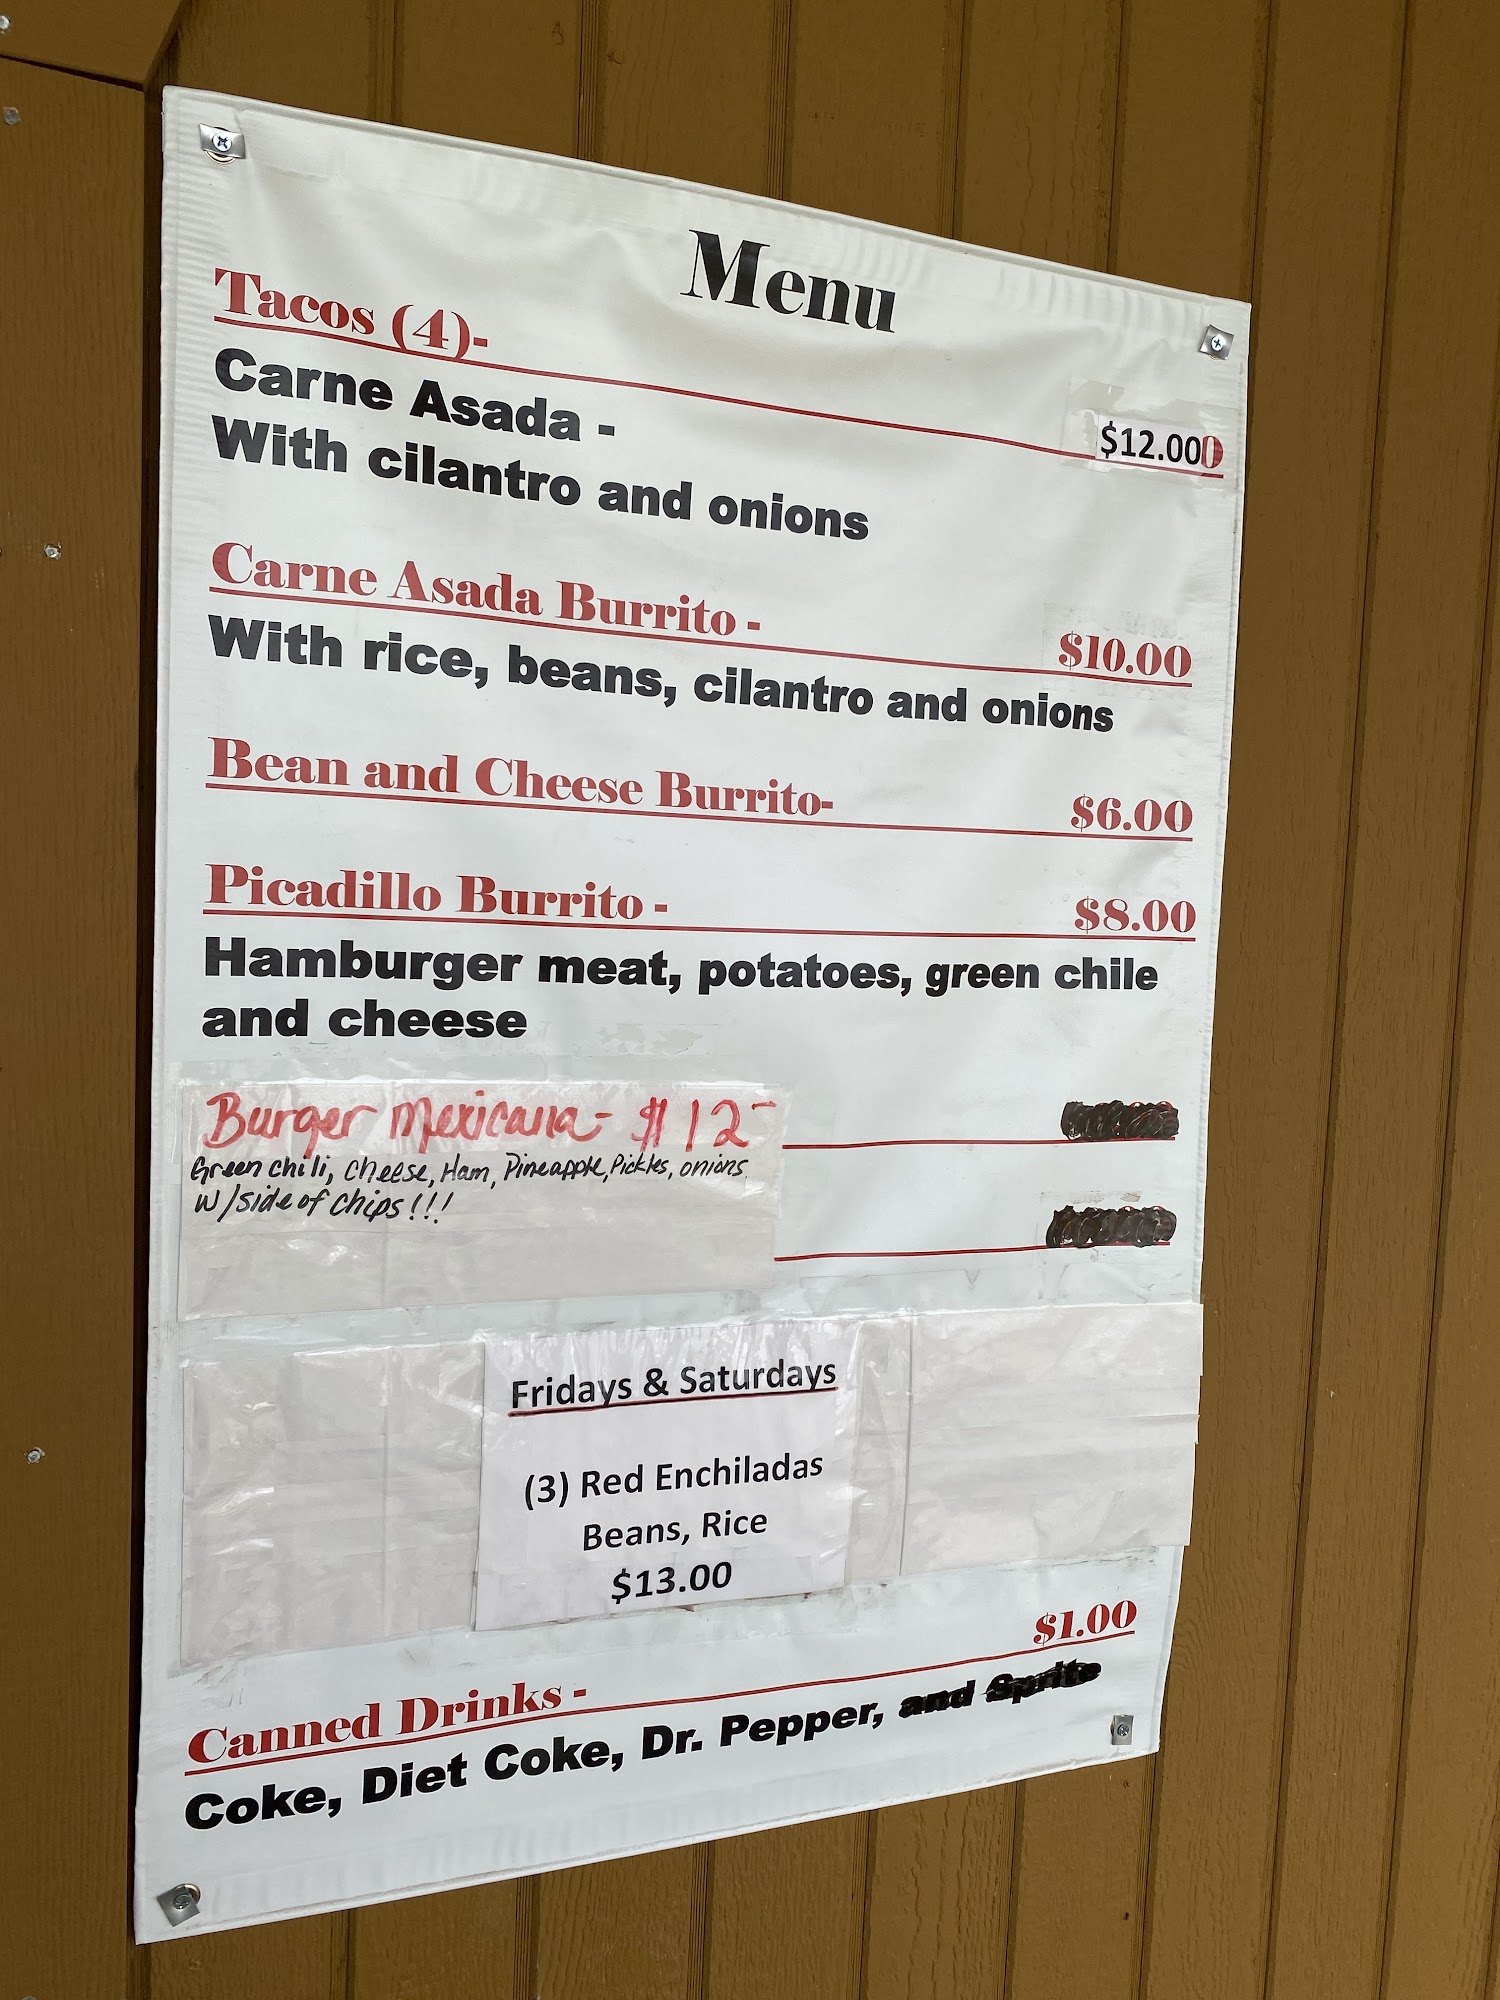 Menu
Tacos (4)-
$12.000
Carne Asada -
With cilantro and onions
Carne Asada Burrito - $10.00
With rice, beans, cilantro and onions
Bean and Cheese Burrito- $6.00
Picadillo Burrito - $8.00
Hamburger meat, potatoes, green chile
and cheese
Burger Mexicana- $12-
Green chili, cheese, Ham, Pineapple, Pickles, onions
w/side of chips!!!
Fridays & Saturdays
(3) Red Enchiladas
Beans, Rice
$13.00
Canned Drinks - $1.00
Coke, Diet Coke, Dr. Pepper, and Sprite